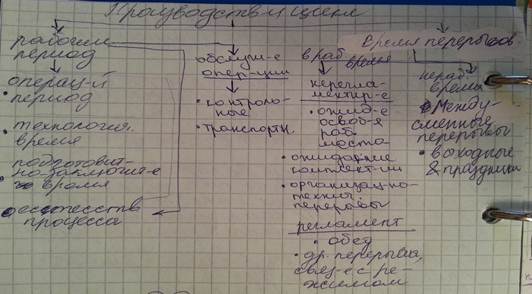 Производств-й цикл
рабочий
период
операц-й
период
• технология.
время
подготовит-
но-заключит-е
время
• естеств
процесса
обслужи-е
опер-ции
• контроль-
ные
• транспортн.
в раб
время
нерегла-
ментир-е
• ожид-е
освоб-я
раб.
места
• ожидание
комплект-ии
• организац-но-
технич
перерывы
регламент
• обед
• др. перерывы,
связ-е с ре-
жимом
Время перерывов
нераб-
время
• Между-
сменные
перерывы
• выходные
& праздники